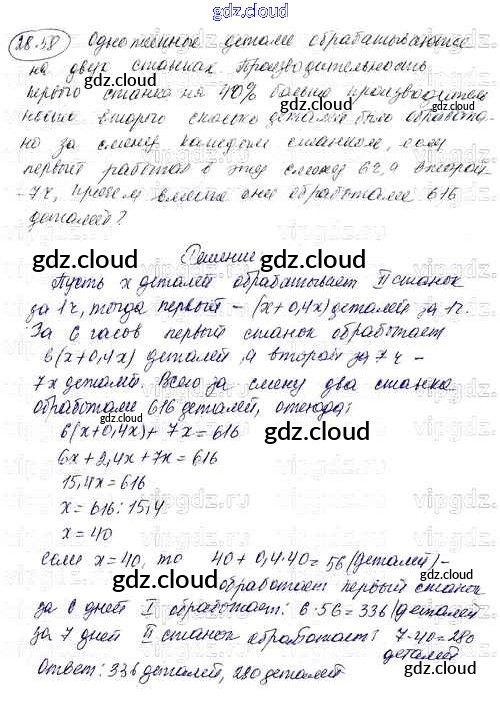 gdz.cloud
28.58 Однотипные детали обрабатываются
на двух станках. Производительность
первого станка на 40% больше производитель
ности второго сколько деталей было обработа-
но за смену каждым станком, если
первый работал в эту смену 6 ч, а второй
-7ч, причем вместе они обработали 616
деталей?
Решение
Пусть х деталей обрабатывает II станок
за 1 ч, тогда первый - (х+0,4х) деталей за 1ч.
За 6 часов первый станок обработает
6(х+0,4х) деталей, а второй за 7 ч -
7х деталей. Всего за смену два станка
обработали 616 деталей, отсюда:
6(х+0,4х)+7х=616
6х+2,4х+7х=616
15,4х=616
х=616:15,4
х=40
Если х=40, то 40+0,4·40=56 (деталей)-
обработает первый станок
за 6 дней I обработает: 6·56=336 (деталей
за 7 дней II станок обработает: 7·40=280
деталей
Ответ: 336 деталей, 280 деталей